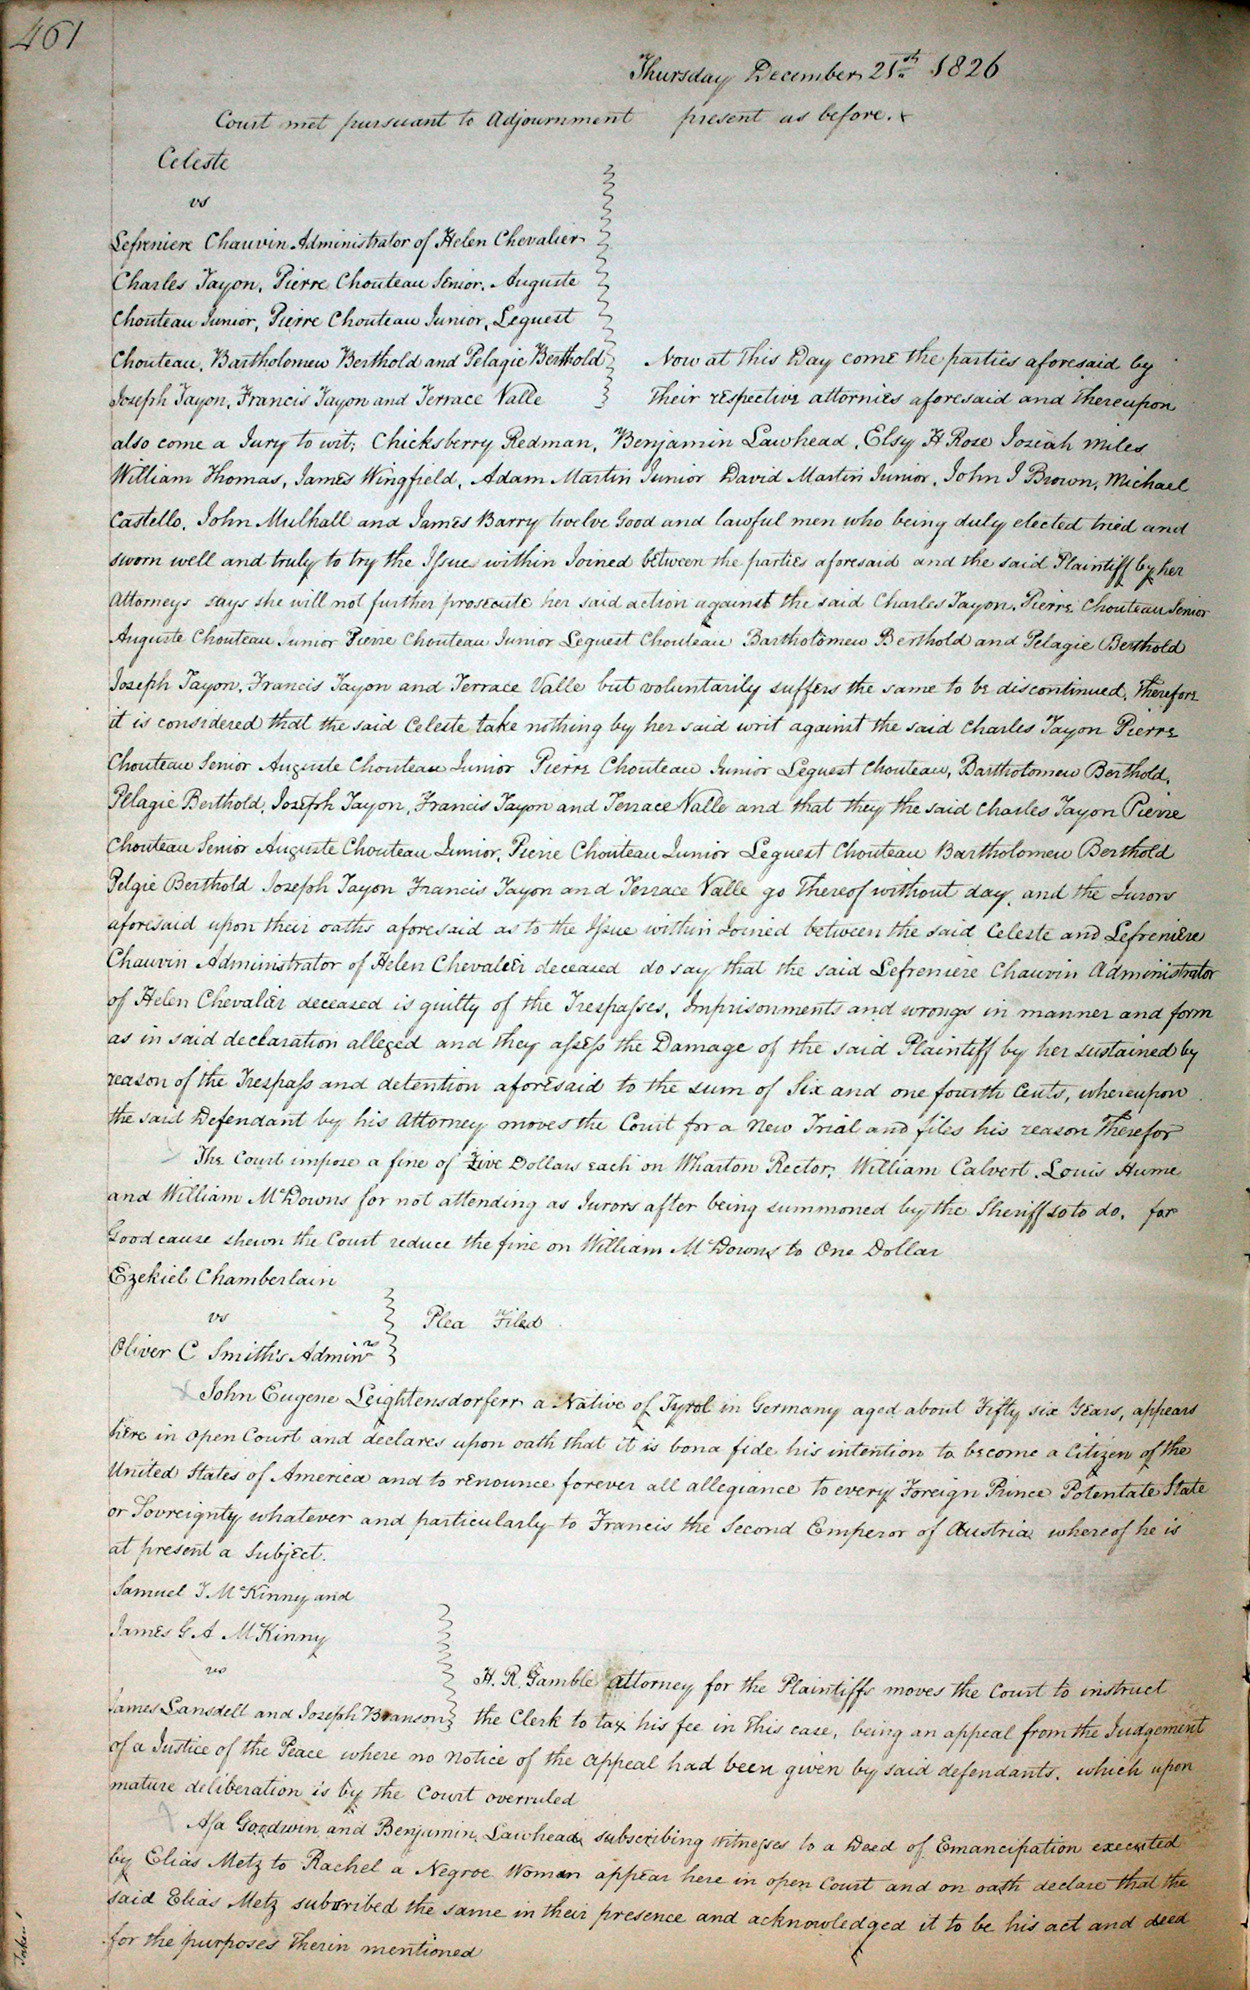 461
Thursday December 21st 1826
Court met pursuant to Adjournment present as before.
Celeste
vs
Lefreniere Chauvin Administrator of Helen Chevalier
Charles Tayon, Pierre Chouteau Senior, Auguste
Chouteau Junior, Pierre Chouteau Junior, Leguest
Chouteau, Bartholomew Berthold and Pelagie Berthold Now at this Day come the parties aforesaid by
Joseph Tayon, Francis Tayon and Terrace Valle their respective attornies aforesaid and thereupon
also come a Jury to wit; Chicksberry Redman, Benjamin Lawhead, Elsy H Rose Josiah Miles
William Thomas, James Wingfield, Adam Martin Junior David Martin Junior, John J Brown, Michael
Castello, John Mulhall and James Barry twelve Good and lawful men who being duly elected tried and
sworn well and truly to try the Issue within Joined between the parties aforesaid and the said Plaintiff by her
Attorneys says she will not further prosecute her said action against the said Charles Tayon, Pierre Chouteau Senior
Auguste Chouteau Junior Pierre Chouteau Junior Leguest Chouteau Bartholomew Berthold and Pelagie Berthold
Joseph Tayon, Francis Tayon and Terrace Valle but voluntarily suffers the same to be discontinued, Therefore
it is considered that the said Celeste take nothing by her said writ against the said Charles Tayon Pierre
Chouteau Senior Auguste Chouteau Junior Pierre Chouteau Junior Leguest Chouteau, Bartholomew Berthold,
Pelagie Berthold, Joseph Tayon, Francis Tayon and Terrace Valle and that they the said Charles Tayon Pierre
Chouteau Senior Auguste Chouteau Junior, Pierre Chouteau Junior Leguest Chouteau Bartholomew Berthold
Pelgie Berthold Joseph Tayon Francis Tayon and Terrace Valle go Thereof without day, and the Jurors
aforesaid upon their oaths aforesaid as to the Issue within Joined between the said Celeste and Lefreniere
Chauvin Administrator of Helen Chevaleir deceased do say that the said Lefreniere Chauvin Administrator
of Helen Chevalier deceased is guilty of the Trespasses, Imprisonments and wrongs in manner and form
as in said declaration alleged and they assess the Damage of the said Plaintiff by her sustained by
reason of the Trespass and detention aforesaid to the sum of Six and one fourth Cents, whereupon
the said Defendant by his Attorney moves the Court for a New Trial and files his reason Therefor
The Court impose a fine of Five Dollars each on Wharton Rector, William Calvert, Louis Hume
and William McDowns for not attending as Jurors after being summoned by the Sheriff so to do, for
Good cause shewn the Court reduce the fine on William McDowns to One Dollar
Ezekiel Chamberlain
vs Plea Filed
Oliver C Smith's Adminrs
John Eugene Leightensdorferr a Native of Tyrol in Germany aged about Fifty six Years, appears
here in open Court and declares upon oath that it is bona fide his intention to become a Citizen of the
United States of America and to renounce forever all allegiance to every Foreign Prince Potentate State
or Sovreignty whatever and particularly to Francis the Second Emperor of Austria whereof he is
at present a Subject.
Samuel T McKinny and
James G A McKinny
vs H. R. Gamble attorney for the Plaintiffs moves the Court to instruct
James Lansdell and Joseph Branson the Clerk to tax his fee in this case, being an appeal from the Judgement
of a Justice of the Peace where no Notice of the Appeal had been given by said defendants, which upon
mature deliberation is by the Court overruled
Asa Goodwin and Benjamin Lawhead subscribing witnesses to a Deed of Emancipation executed
by Elias Metz to Rachel a Negroe Woman appear here in open Court and on oath declare that the
said Elias Metz subscribed the same in their presence and acknowledged it to be his act and deed
for the purposes Therin mentioned
Taken